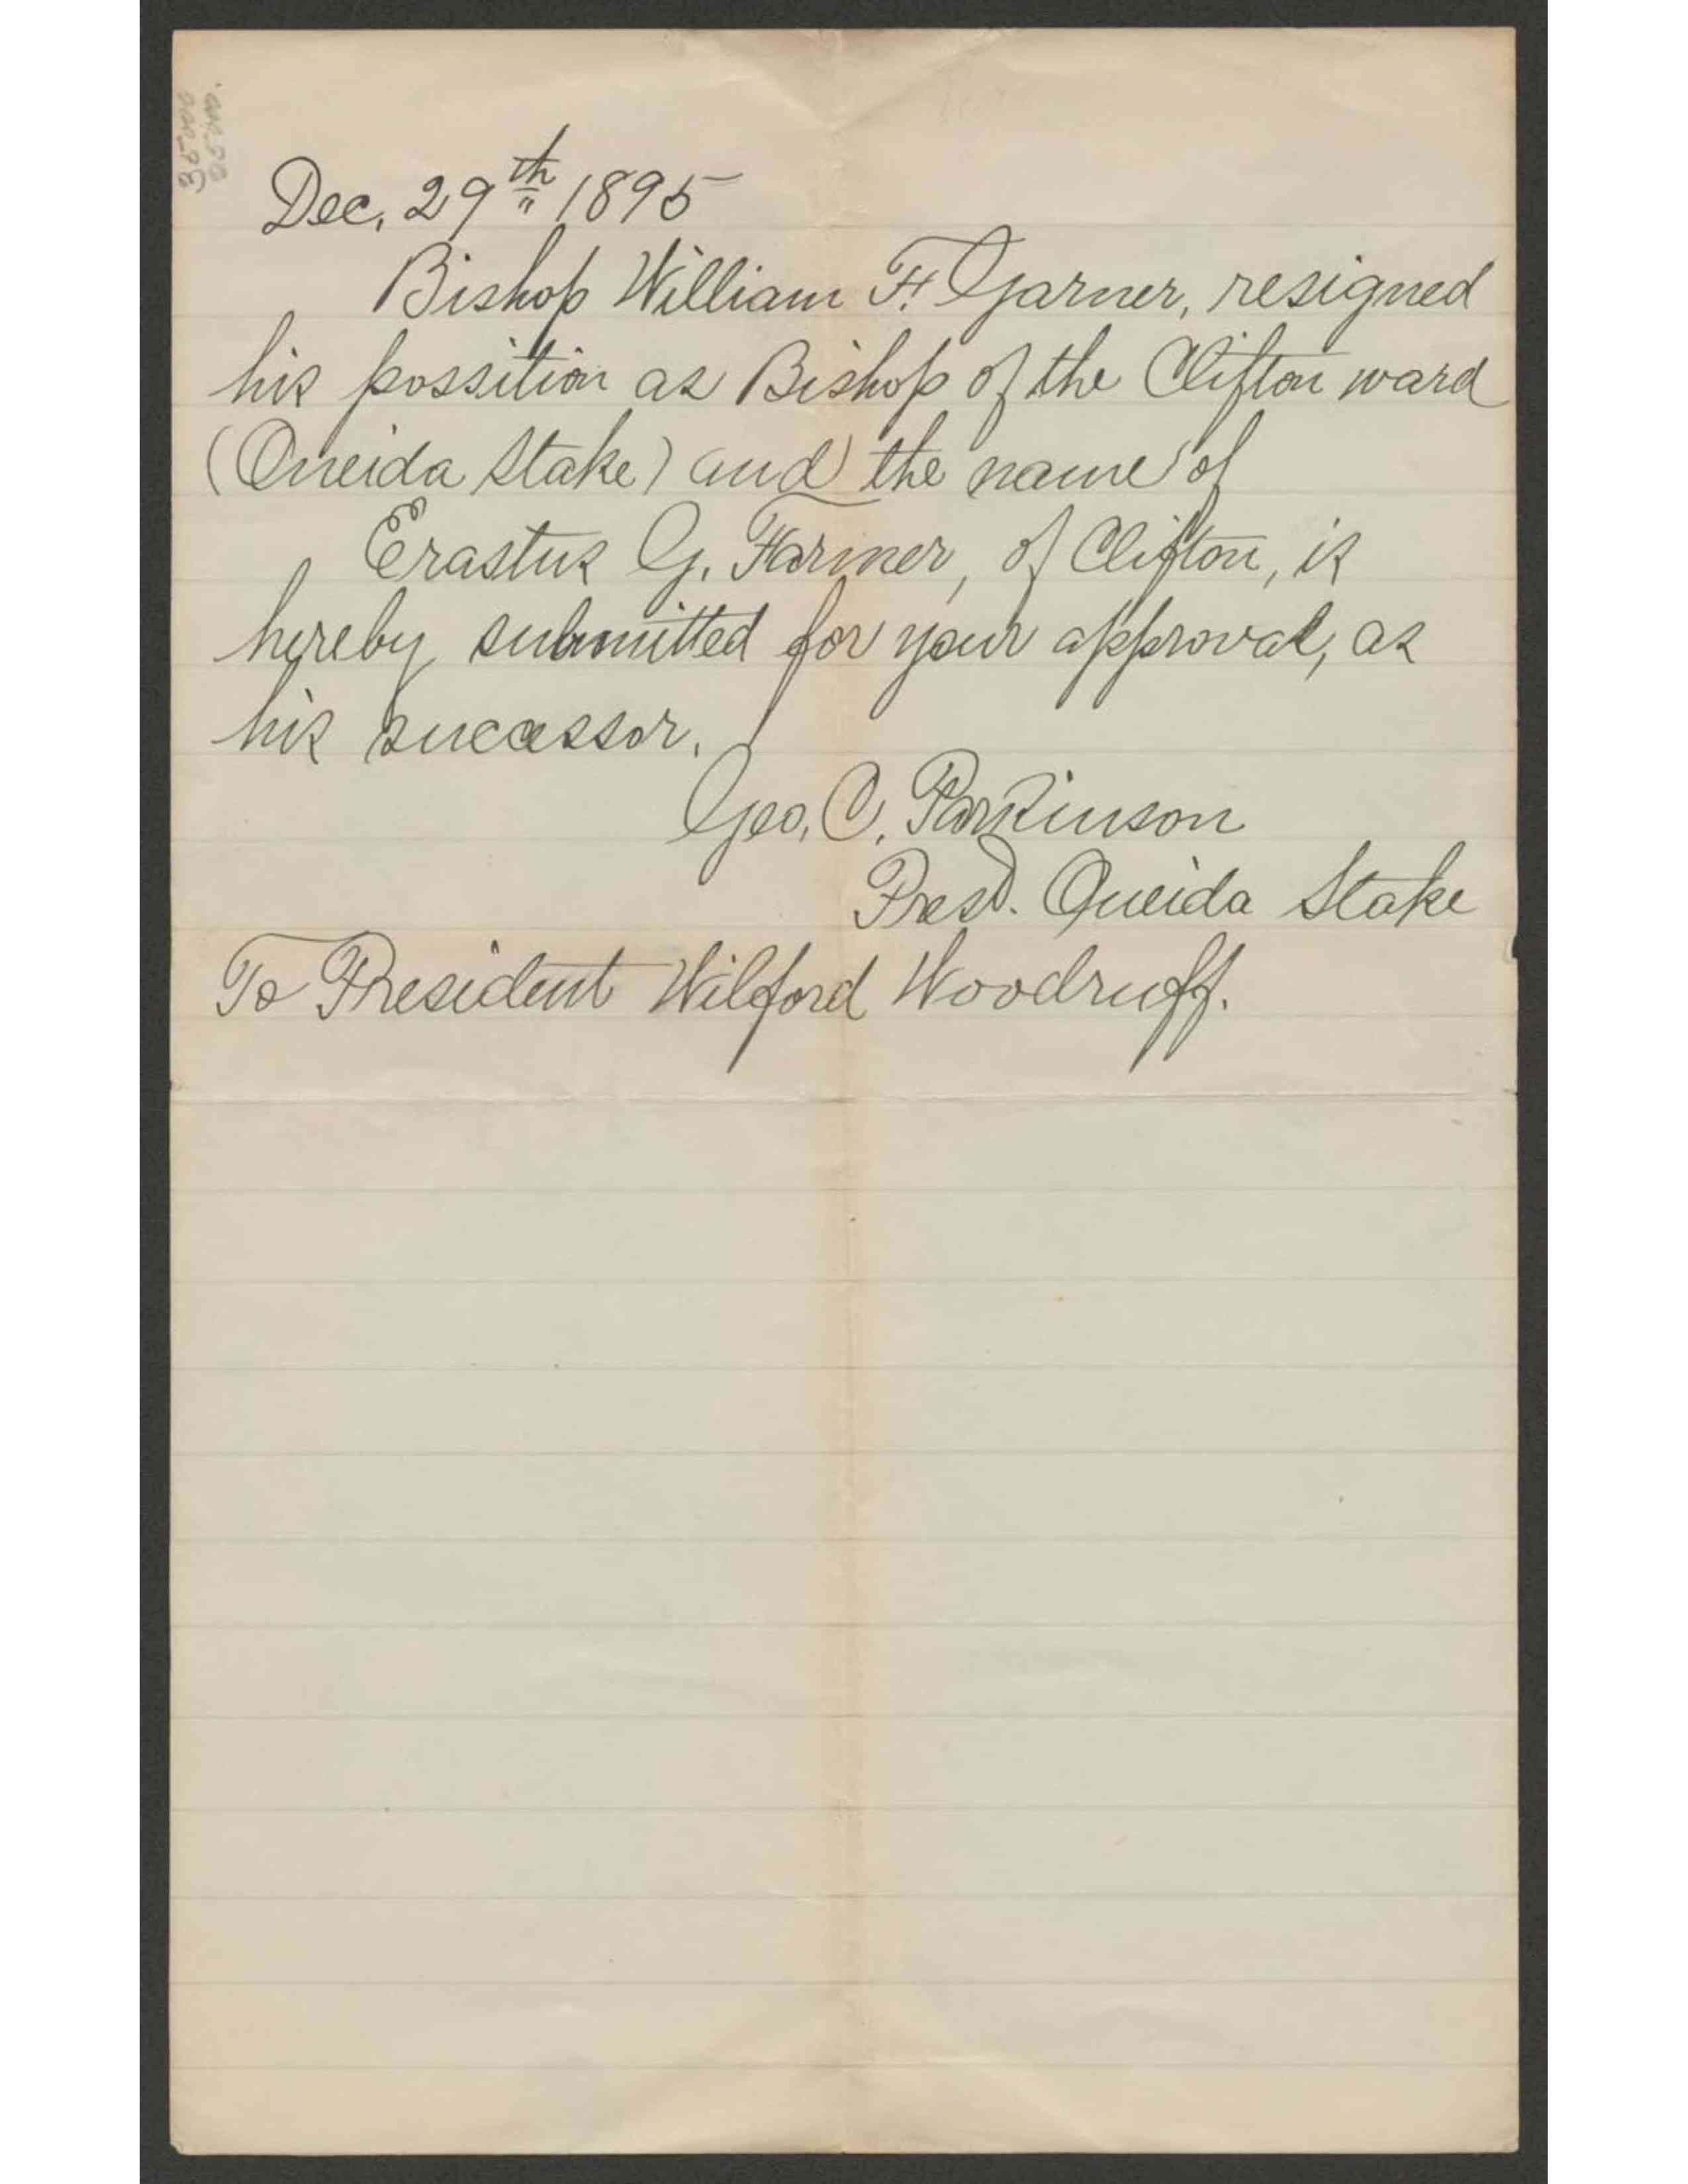 Dec. 29th 1895
Bishop William F. Garner, resigned
his possition as Bishop of the Clifton ward
(Oneida Stake) and the name of
Erastus G. Farmer, of Clifton, is
hereby submitted for your approval, as
his successor.
Geo. C. Parkinson
Prest. Oneida Stake
To President Wilford Woodruff.